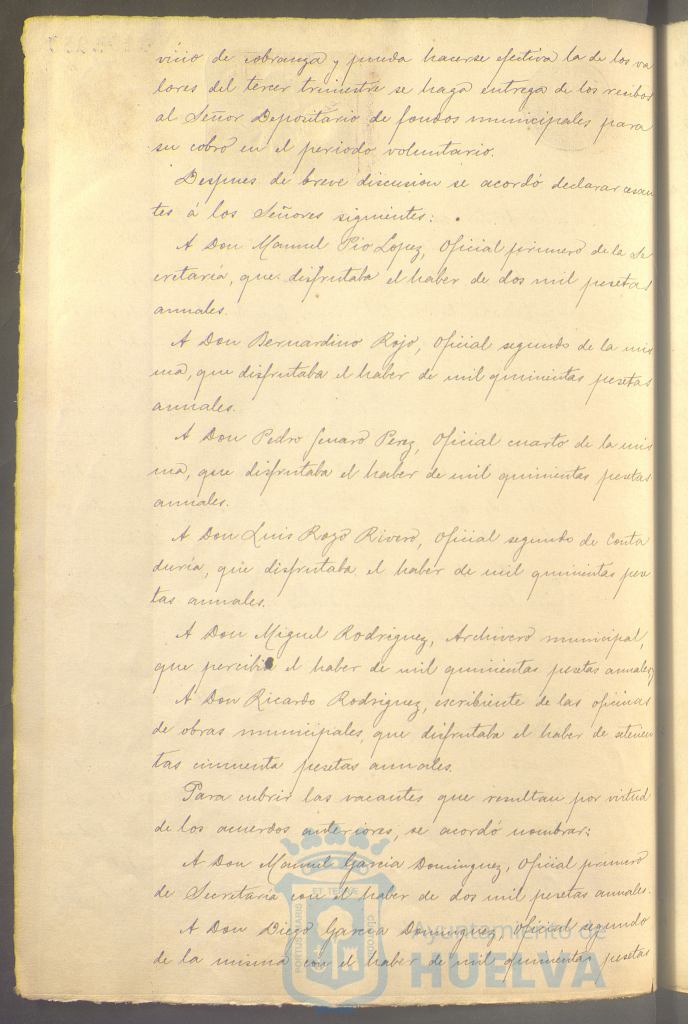 vicio de cobranza y pueda hacerse efectiva la de los va
lores del tercer trimestre se haga entrega de los recibos
al Señor Depositario de fondos municipales para
su cobro en el periodo voluntario.
Despues de breve discusion se acordó declarar cesan
tes á los Señores siguientes:
A Don Manuel Pio Lopez, Oficial primero de la Se
cretaría, que disfrutaba el haber de dos mil pesetas
anuales.
A Don Bernardino Rojo, Oficial segundo de la mis
ma, que disfrutaba el haber de mil quinientas pesetas
anuales.
A Don Pedro Genaro Perez, Oficial cuarto de la mis
ma, que disfrutaba el haber de mil quinientas pesetas
anuales.
A Don Luis Rozo Rivero, Oficial segundo de Conta
duría, que disfrutaba el haber de mil quinientas pese
tas anuales.
A Don Miguel Rodriguez, Archivero municipal,
que percibia el haber de mil quinientas pesetas anuales y
A Don Ricardo Rodriguez, escribiente de las oficinas
de obras municipales, que disfrutaba el haber de setecien
tas cincuenta pesetas anuales.
Para cubrir las vacantes que resultan por virtud
de los acuerdos anteriores, se acordó nombrar:
A Don Manuel Garcia Dominguez, Oficial primero
de Secretaría con el haber de dos mil pesetas anuales.
A Don Diego Garcia Dominguez, Oficial segundo
de la misma con el haber de mil quinientas pesetas
PORTUS MARIS ET TERRE CUSTODIA
Ayuntamiento de
HUELVA